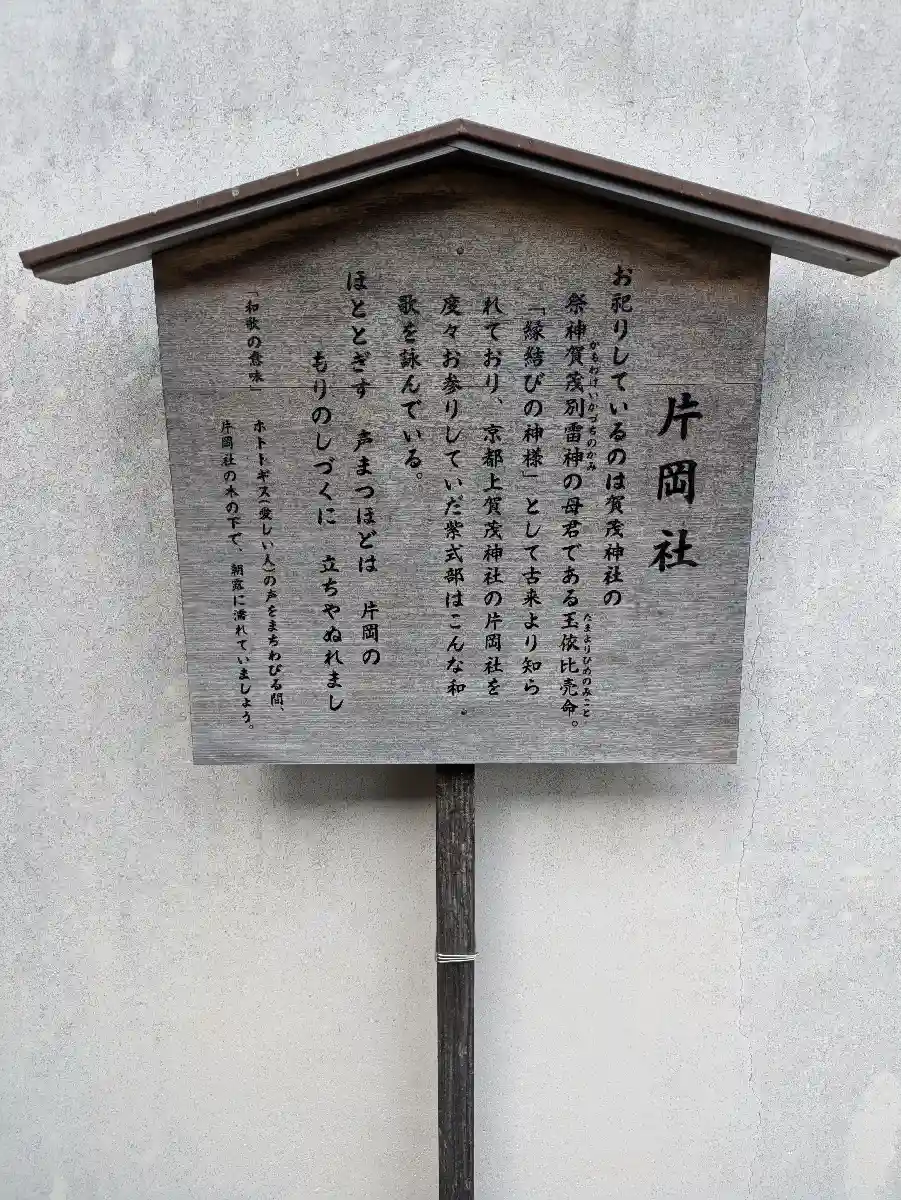 片岡社
お祀りしているのは賀茂神社の
祭神賀茂別雷神の母君である玉依比売命。
かもわけいかづちのかみ
たまよりひめのみこと
「縁結びの神様」として古来より知ら
れており、京都上賀茂神社の片岡社を
度々お参りしていだ紫式部はこんな和
歌を詠んでいる。
ほととぎす 声まつほどは 片岡の
もりのしづくに 立ちやぬれまし
「和歌の意味」
ホトトギス(愛しい人)の声をまちわびる間、
片岡社の木の下で、朝露に濡れていましょう。